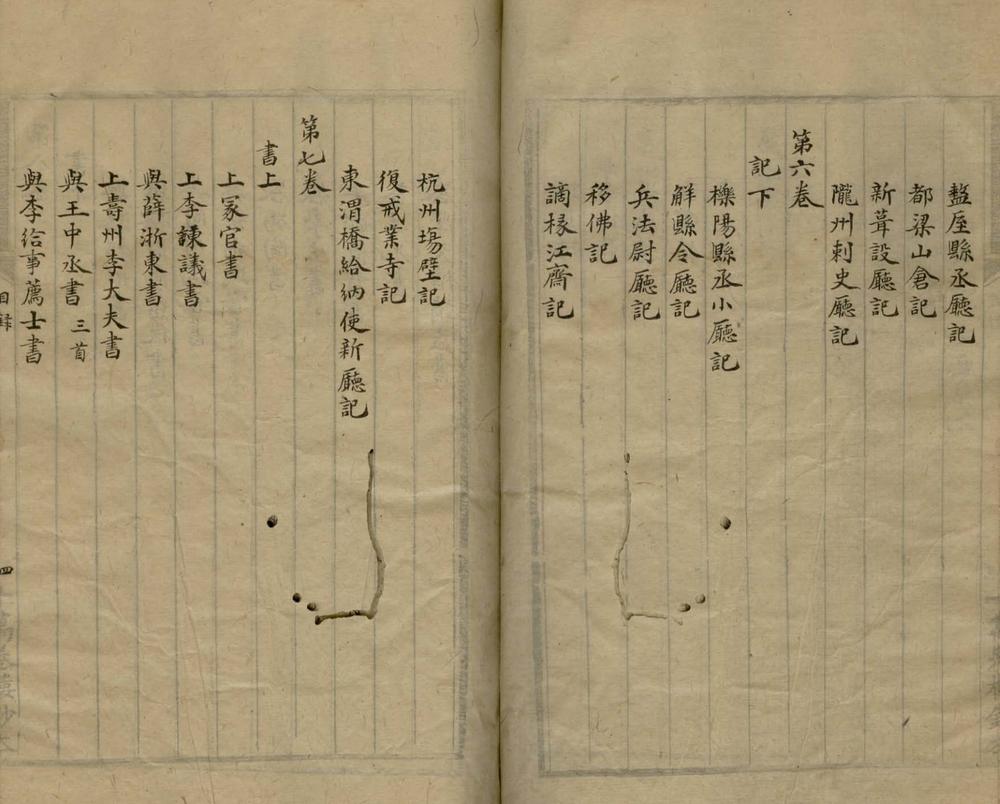 盩厔縣丞廳記
都梁山倉記
新葺設廳記
隴州刺史廳記
第六卷
記下
櫟陽縣丞小廳記
解縣令廳記
兵法尉廳記
移佛記
謫掾江齋記
杭州塲壁記
復戒業寺記
東渭橋給納使新廳記
第七卷
書上
上冢官書
上李諫議書
與薛浙東書
上壽州李大夫書
與王中丞書 三首
與李給事薦士書
目録
四